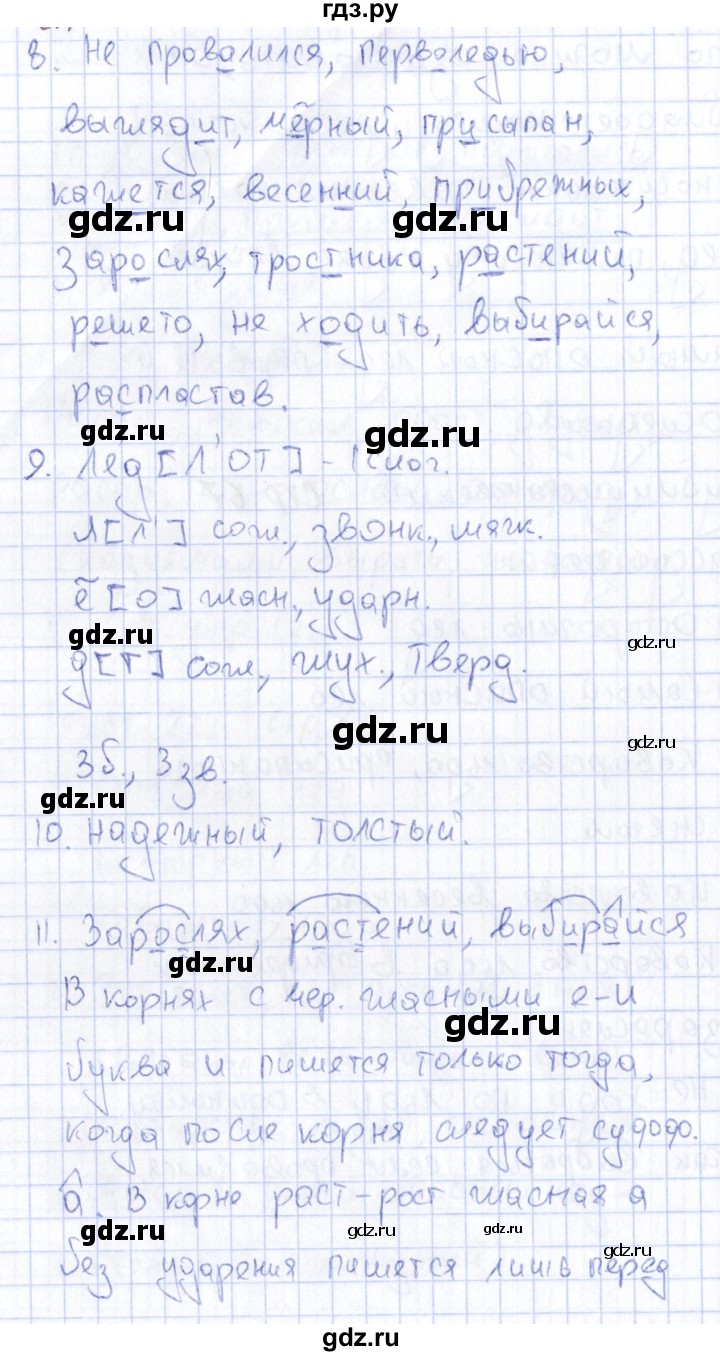 гдз.ру
8. Не провалился, перволедью,
выглядит, чёрный, присыпан,
кажется, весенний, прибрежных,
gdz.ru gdz.ru
Зарослях, тростника, растений,
решето, не ходить, выбирайся,
распластав.
gdz.ru gdz.ru
9. Лёд [Л'ОТ] - 1 слог.
л [Л'] согл., звонк., мягк.
ё [О] гласн., ударн.
gdz.ru gdz.ru
д [Т] согл., глух., тверд.
gdz.ru gdz.ru
3 б., 3 зв.
gdz.ru gdz.ru
10. Надежный, толстый.
11. Зарослях, растений, выбирайся
gdz.ru
В корнях с чер. гласными е-и
gdz.ru
буква и пишется только тогда,
когда после корня следует
а. В корне раст-рост гласная а
gdz.ru gdz.ru gdz.ru
без ударения пишется лишь перед
gdz.ru
gdz.ru